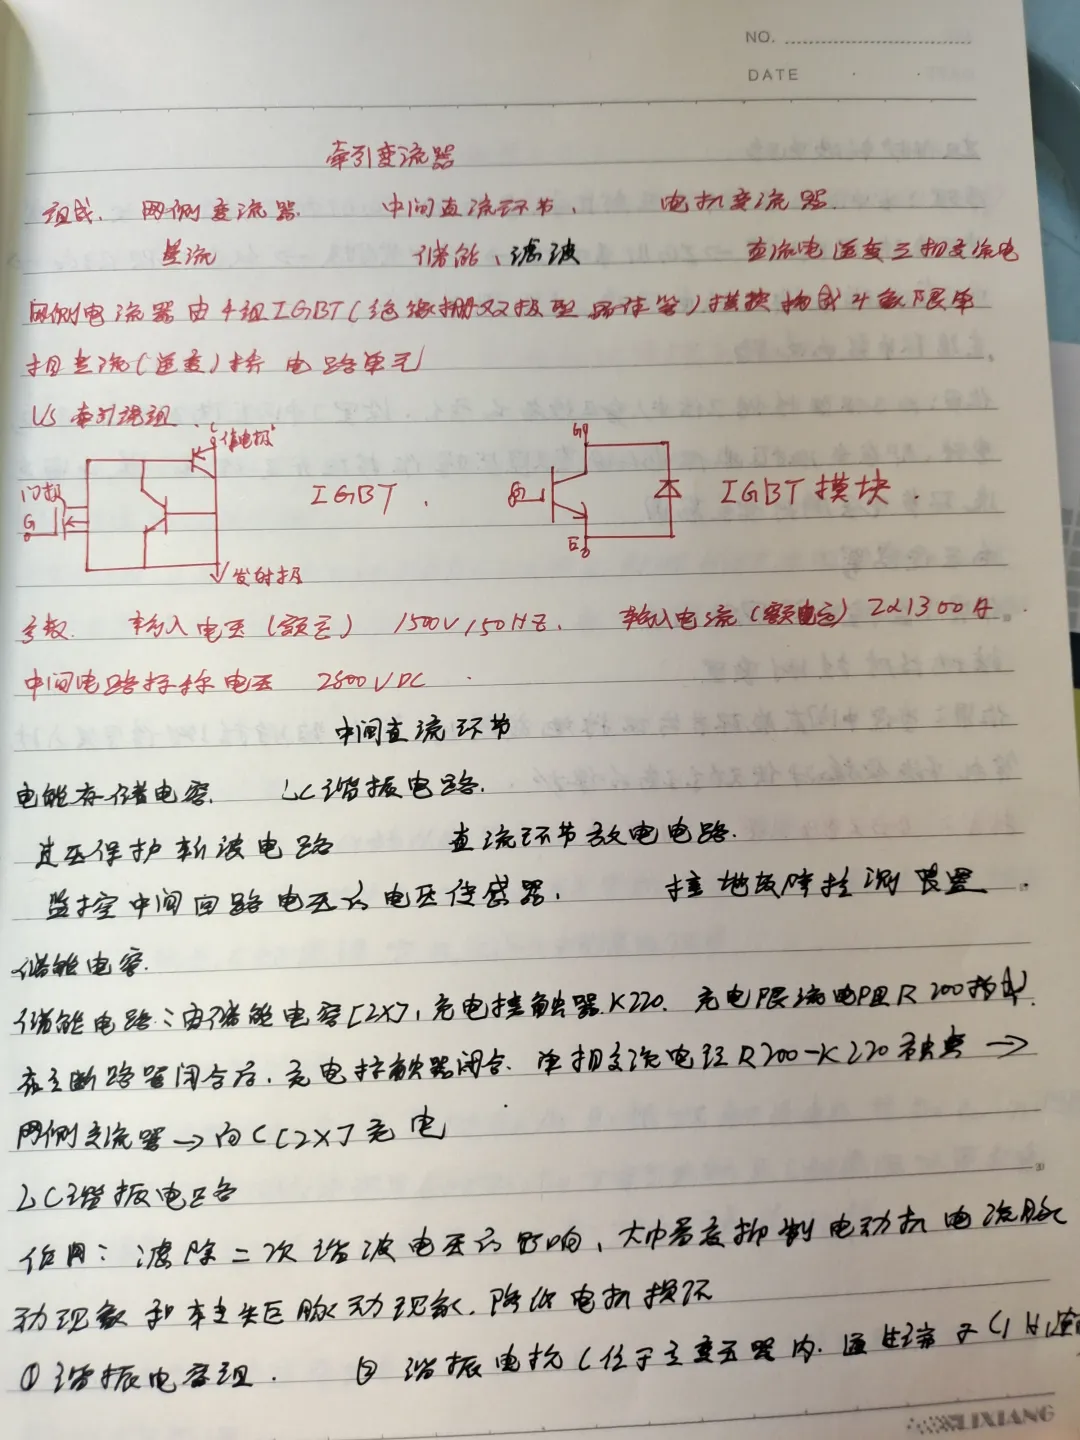 NO.
DATE
牵引变流器
组成. 网侧变流器. 中间直流环节、 电机变流器.
整流 储能、滤波 直流电逆变三相交流电
网侧电流器由4组IGBT(绝缘栅双极型晶体管)模块构成4象限单
相整流(逆变)桥 电路单元
US 牵引绕组
集电极
门极
G
发射极
IGBT.
IGBT模块.
参数. 输入电压(额定) 1500V,50HZ. 输入电流(额定) 2x1300A.
中间电路标称电压 2800VDC
中间直流环节
电能存储电容. LC谐振电路.
过压保护斩波电路 直流环节放电电路.
监控中间回路电压的电压传感器. 接地故障检测装置.
储能电容.
储能电路:由储能电容[2X],充电接触器K220.充电限流电阻R200构成.
在主断路器闭合后,充电接触器闭合.单相交流电经R200-K220触点→
网侧变流器→向C[2X]充电
LC谐振电路
作用:滤除二次谐波电压的影响、大幅度抑制电动机电流脉
动现象和转矩脉动现象.降低电机损坏
①谐振电容组. ②谐振电抗(位于主变压器内.通过端子
LIXIANG